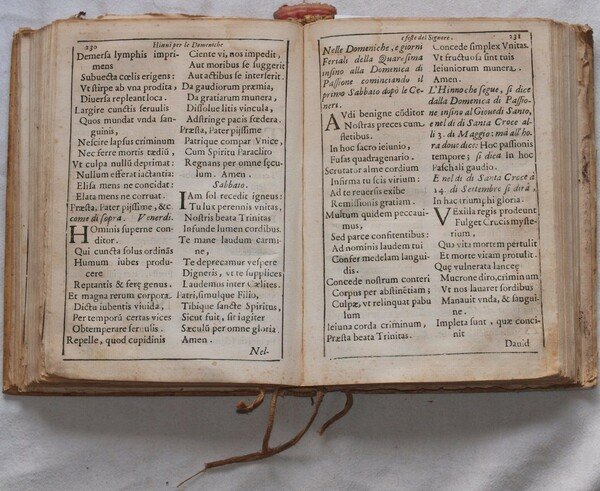 230
Hinni per le Domeniche
Demersa lymphis impri-
mens
Subuecta cœlis erigens:
Vt stirpe ab vna prodita,
Diuersa repleant loca.
Largire cunctis seruulis
Quos mundat vnda san-
guinis,
Nescire lapsus criminum
Nec ferre mortis tædiũ,
Vt culpa nullũ deprimat:
Nullum efferat iactantia:
Elisa mens ne concidat:
Elata mens ne corruat.
Præsta, Pater pijssime, &c
come di sopra. Venerdi.
Hominis superne con-
ditor.
Qui cuncta solus ordinãs
Humum iubes produ-
cere
Reptantis & feręgenus.
Et magna rerum corpora.
Dictu iubentis viuida,
Per temporũ certas vices
Obtemperare seruulis.
Repelle, quod cupidinis
Ciente vi, nos impedit,
Aut moribus se suggerit
Aut actibus se interserit.
Da gaudiorum præmia,
Da gratiarum munera,
Dissolue litis vincula,
Adstringe pacis fœdera.
Præsta, Pater pijssime
Patrique compar Vnice,
Cum Spiritu Paraclito
Regnans per omne sęcu-
lum. Amen.
Sabbato.
Iam sol recedit igneus:
Tu lux perennis vnitas,
Nostris beata Trinitas
Infunde lumen cordibus.
Te mane laudum carmi-
ne,
Te deprecamur vespere
Digneris, vt te supplices
Laudemus inter Cælites.
Patri, simulque Filio,
Tibique sancte Spiritus,
Sicut fuit, sit iugiter
Sæculũ per omne gloria
Amen.
Nel-
e feste del Signore.
231
Nelle Domeniche, e giorni
Feriali della Quaresima
insino alla Domenica di
Passione cominciando il
primo Sabbato dopò le Ce-
neri.
Avdi benigne cõditor
Nostras preces cum
fletibus.
In hoc sacro ieiunio,
Fusas quadragenario.
Scrutator alme cordium
Infirma tu scis virium:
Ad te reuersis exibe
Remissionis gratiam.
Multum quidem peccaui-
mus,
Sed parce confitentibus:
Ad nominis laudem tui
Confer medelam langui-
dis.
Concede nostrum conteri
Corpus per abstinẽtiam;
Culpæ, vt relinquat pabu
lum
Ieiuna corda criminum,
Præsta beata Trinitas.
Concede simplex Vnitas.
Vt fructuosa sint tuis
Ieiuniorum munera.
Amen.
L'Hinno che segue, si dice
dalla Domenica di Passio-
ne insino al Giouedi Santo,
e nel di di Santa Croce al-
li 3. di Maggio: ma all'ho.
ra doue dice: Hoc passionis
tempore; si dica In hoc
Paschali gaudio.
E nel dì di Santa Croce à
14. di Settembre si dirà,
In hac triumphi gloria.
Vexilla regis prodeunt
Fulget Crucis myste-
rium,
Quo vita mortem pertulit
Et morte vitam protulit.
Quę vulnerata lanceę
Mucrone diro, criminum
Vt nos lauaret sordibus
Manauit vnda, & sangui.
ne.
Impleta sunt, quæ conci-
nit
Dauid